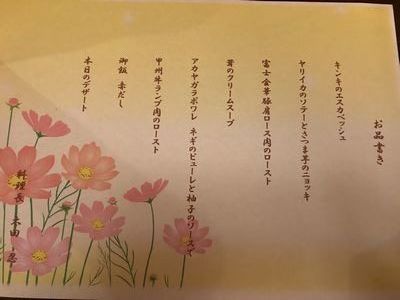 お品書き
キンキのエスカベッシュ
ヤリイカのソテーとさつま芋のニョッキ
富士金華豚肩ロース肉のロースト
茸のクリームスープ
アカヤガラポワレ ネギのピューレと柚子のソースで
甲州牛ランプ肉のロースト
御飯 赤だし
本日のデザート
料理長 本田 忍